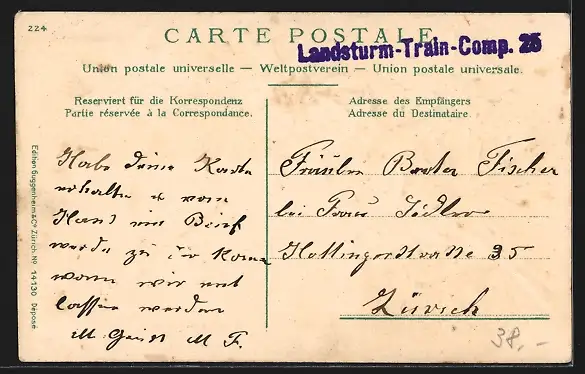 224
CARTE POSTALE
Landsturm-Train-Comp. 25
Union postale universelle — Weltpostverein — Union postale universale.
Reserviert für die Korrespondenz
Partie réservée à la Correspondance.
Adresse des Empfängers
Adresse du Destinataire.
Edition Guggenheim & Co Zürich. No 14130 Déposé
Habe deine Karte
erhalten u von
Hans ein Brief
werde zu dir
wann wir ent
lassen werden
M. M F.
Fräulein Fischer
bei Frau
Hottingerstrasse 35
Zürich
38,-